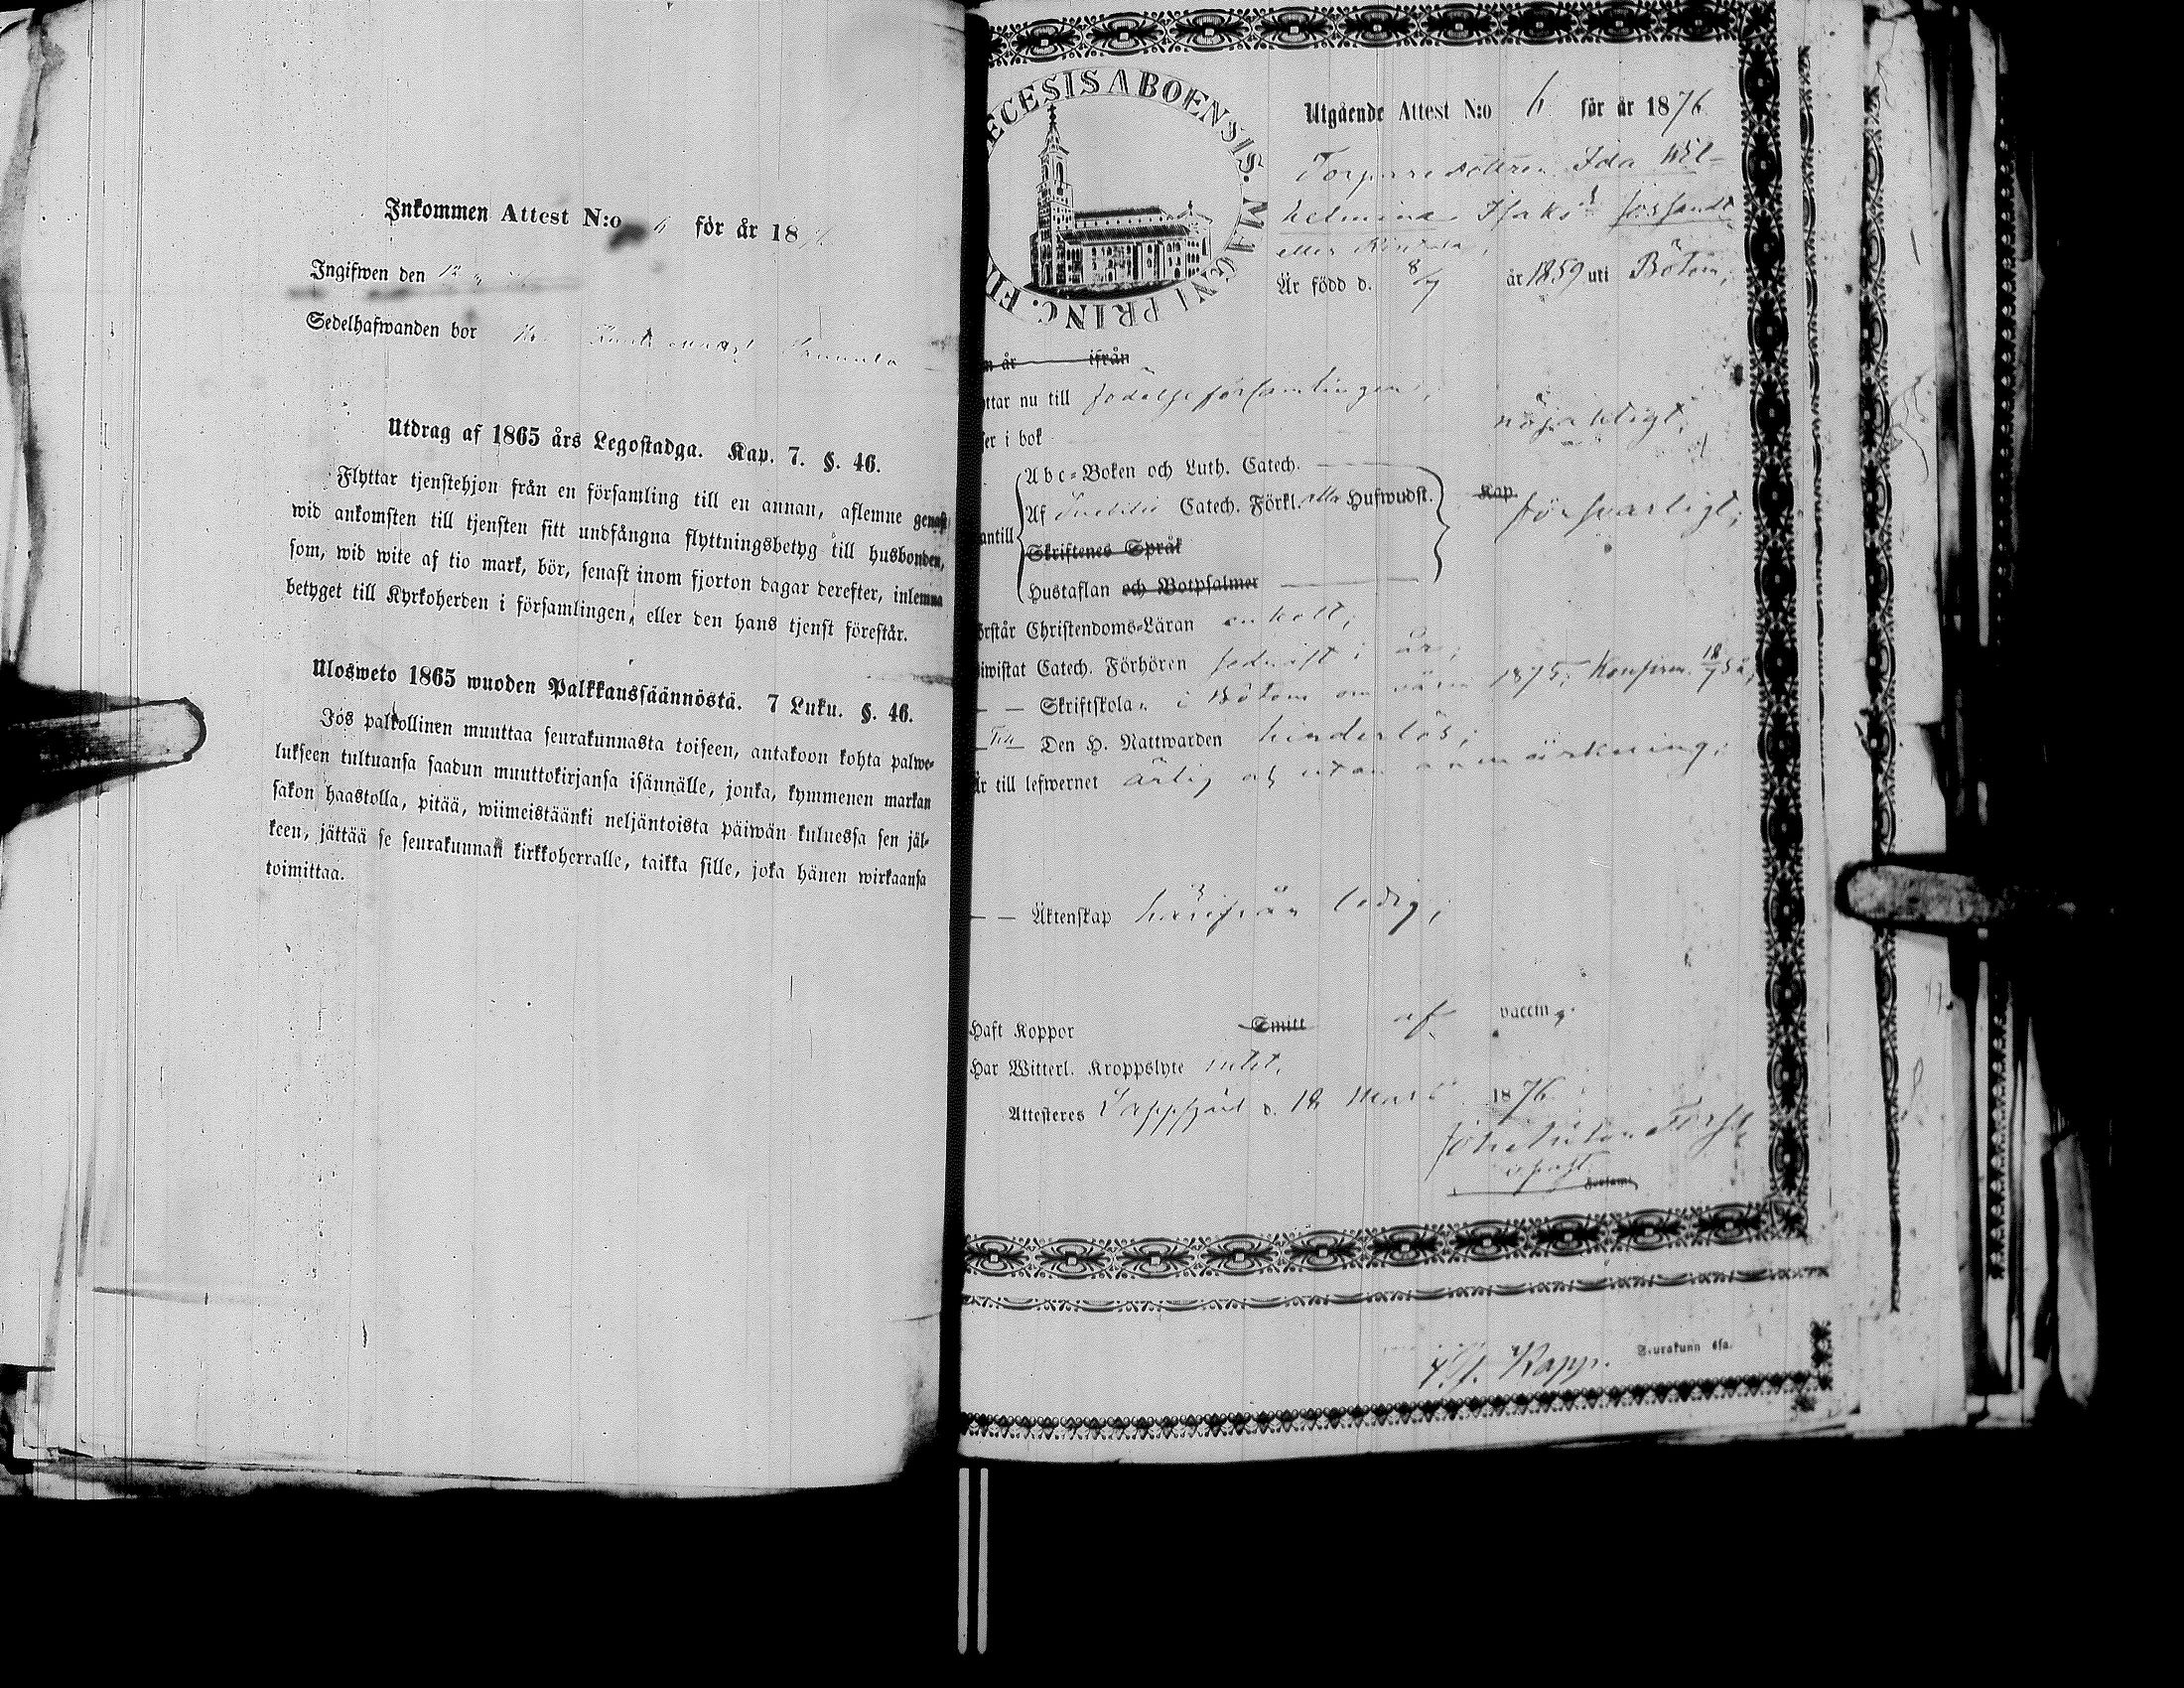 Inkommen Attest N:o 6 för år 18
Ingifwen den 12
Sedelhafwanden bor
Utdrag af 1865 års Legostadga. Kap. 7. §. 46.
Flyttar tjenstehjon från en församling till en annan, aflemne genast
wid ankomsten till tjensten sitt undfångna flyttningsbetyg till husbonden,
som, wid wite af tio mark, bör, senast inom fjorton dagar derefter, inlemna
betyget till Kyrkoherden i församlingen, eller den hans tjenst förestår.
Ulosweto 1865 wuoden Palkkaussäännöstä. 7 Luku. §. 46.
Jos palkollinen muuttaa seurakunnasta toiseen, antakoon kohta palwe-
lukseen tultuansa saadun muuttokirjansa isännälle, jonka, kymmenen markan
sakon haastolla, pitää, wiimeistäänki neljäntoista päiwän kuluessa sen jäl-
keen, jättää se seurakunnan kirkkoherralle, taikka sille, joka hänen wirkaansa
toimittaa.
ECESIS ABOENSIS. MAGNI PRINC. FI
Utgående Attest N:o 6 för år 1876
Torparedottren Ida Wil-
helmina Isaksd
eller
Är född d. 8/7 år 1859 uti Bötom,
m år ifrån
ttar nu till födelseförsamlingen,
er i bok nöjaktigt,
Abc-Boken och Luth. Catech.
antill Af Svebilii Catech. Förkl. Hufwudst. Kap. försvarligt;
Skriftenes Språk
Hustaflan och Botpsalmer
örstår Christendoms-Läran enkelt;
iwistat Catech. Förhören sednast i år;
— — Skriftskola i Bötom om våren 1875; Konfirm. 18/7 s.å.;
Till Den H. Nattwarden hinderlös;
Är till lefwernet ärlig och utan anmärkning;
— — Äktenskap härifrån ledig;
Haft Koppor Smitt af vaccin
Har Witterl. Kroppslyte intet.
Attesteres Lappfjärd d. 12 Mars 1876
Seurakunn